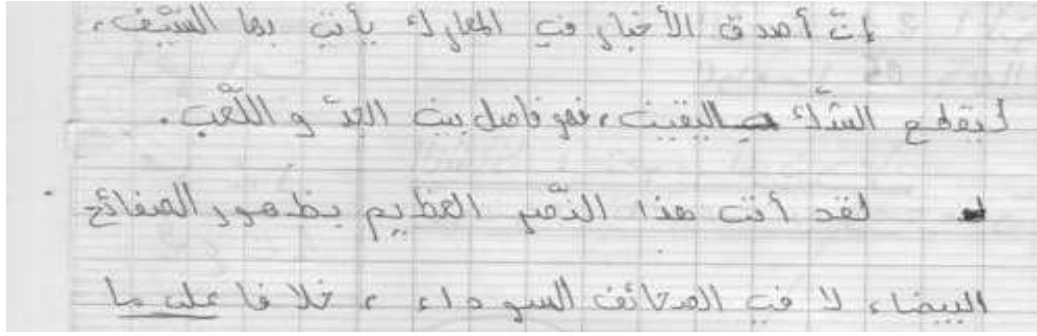 إنّ أصدق الأخبار في المعارك يأتي بها السّيف،
ليقطع الشّك باليقين، فهو فاصل بين الجدّ و اللّعب.
لقد أتى هذا النّصر العظيم بظهور الصفائح
البيضاء لا في الصحائف السوداء، خلافا على ما